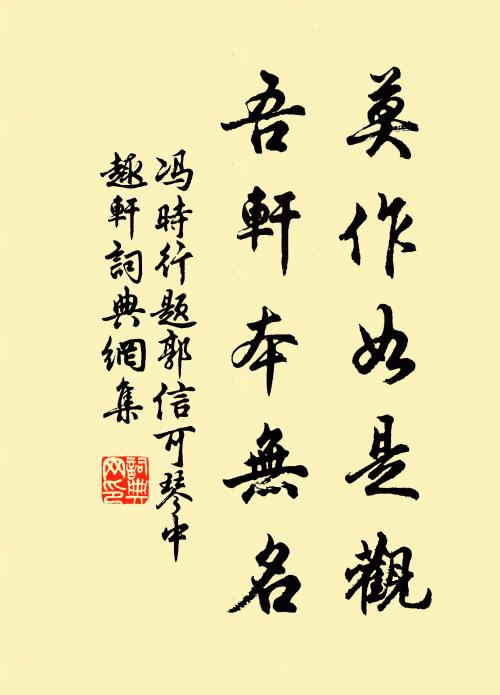 莫作如是觀
吾軒本無名
馮時行題郭信可琴中
趣軒詞典網集
詞典
网印